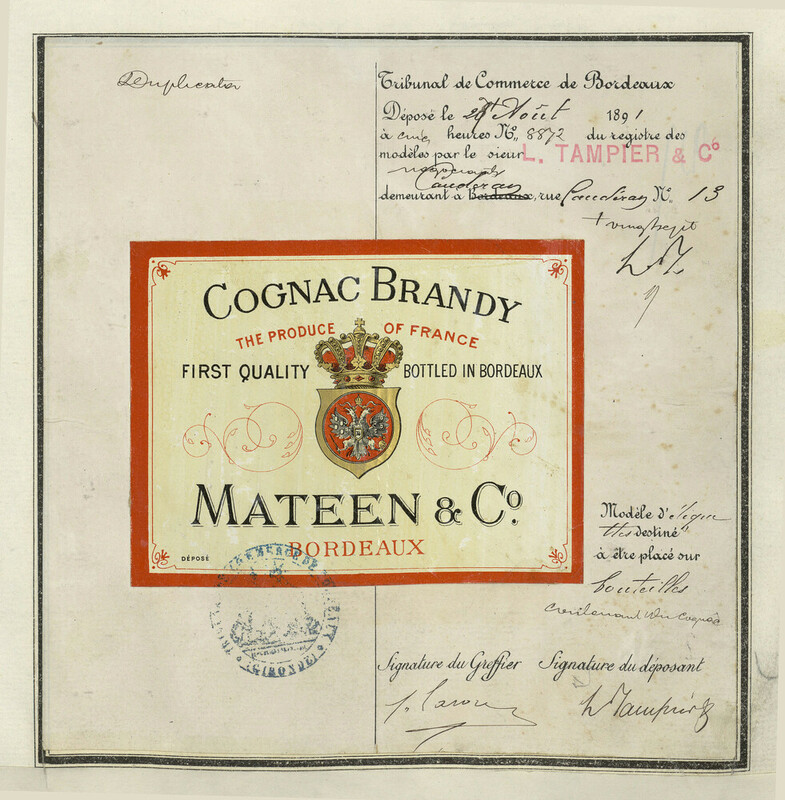 Duplicata
Tribunal de Commerce de Bordeaux
Déposé le 28 Août 1891
à cinq heures No. 8872 du registre des
modèles par le sieur L. TAMPIER & Co
négociants
Caudéran
demeurant à Bordeaux, rue Caudéran No. 13
COGNAC BRANDY
THE PRODUCE OF FRANCE
FIRST QUALITY BOTTLED IN BORDEAUX
MATEEN & Co.
BORDEAUX
DÉPOSÉ
Modèle d'
destiné
à être placé sur
bouteilles
contenant du cognac
(GIRONDE)
Signature du Greffier Signature du déposant
L Tampier &